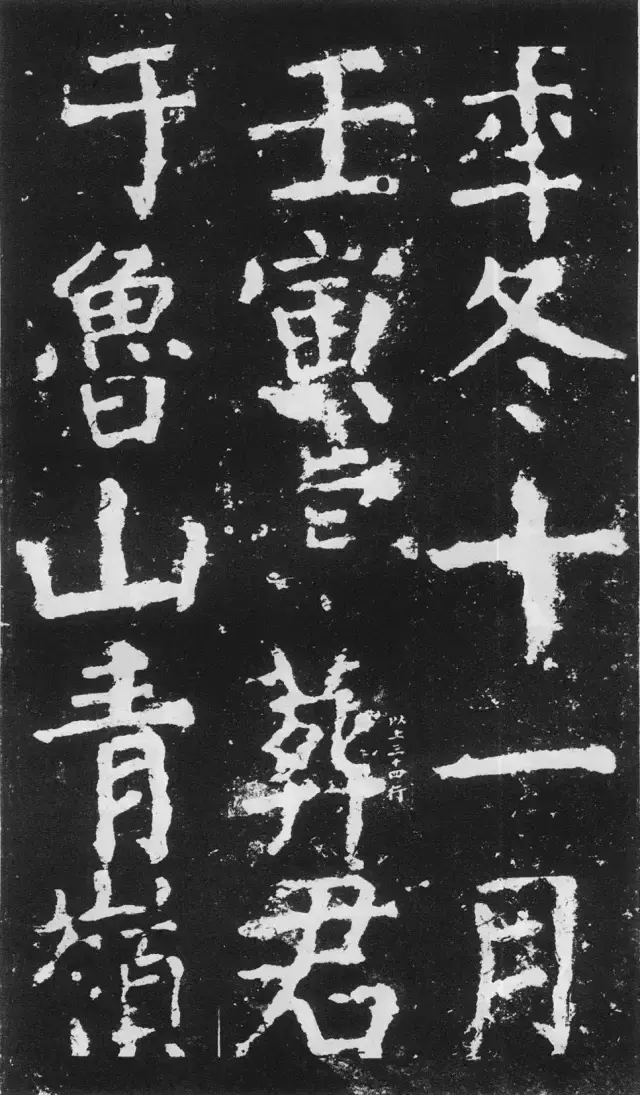 年冬十一月
壬寅葬君
以上三十四行
于魯山青嶺